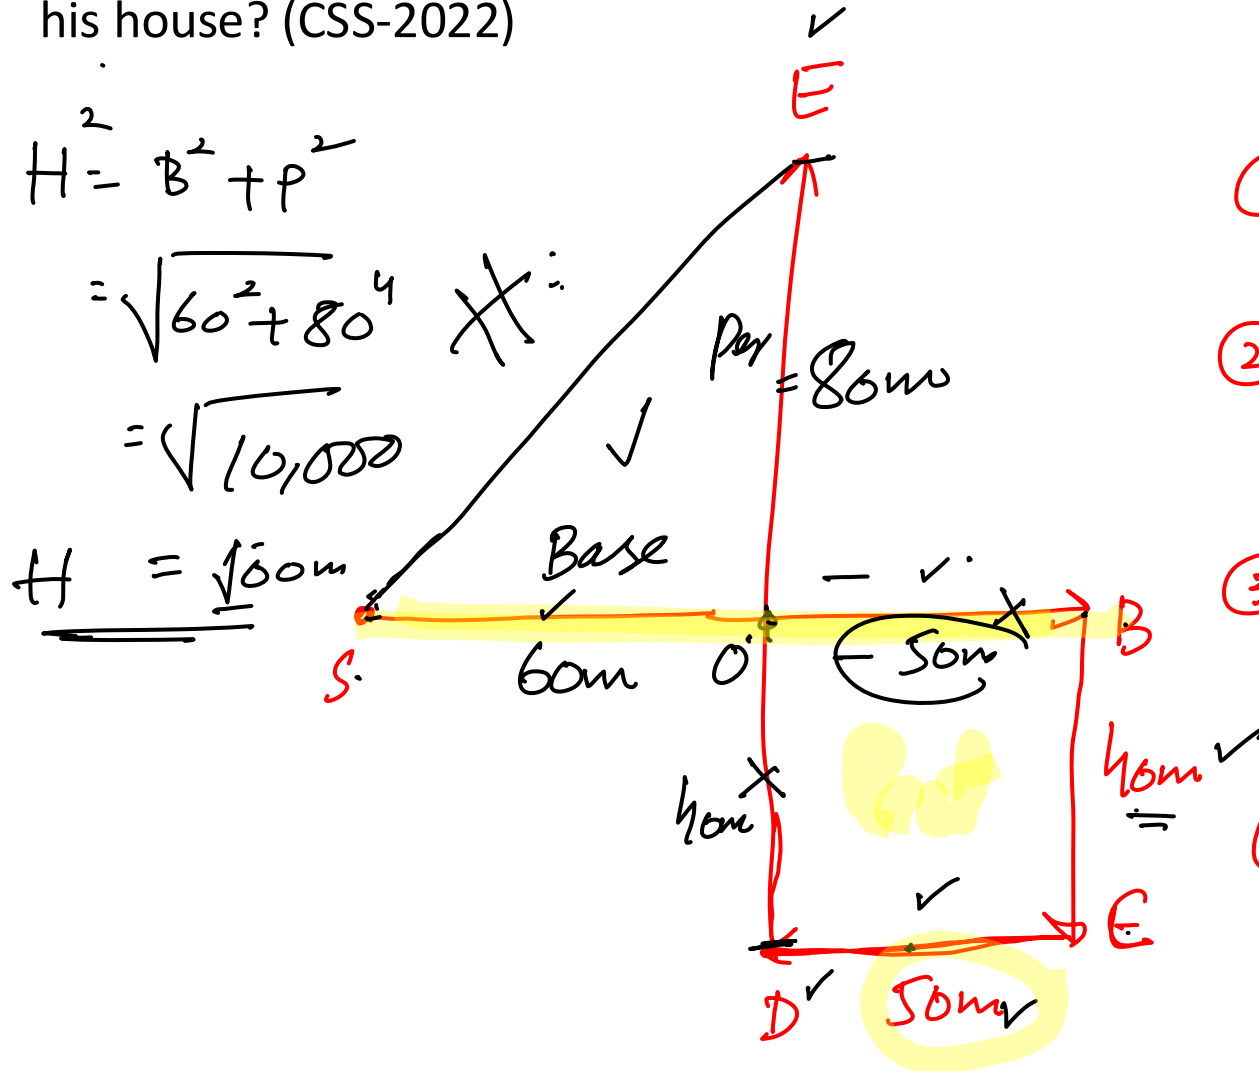 his house? (CSS-2022)
E
H² = B² + P²
= √60² + 80⁴
= √10,000
H = 100m
Per = 80m
Base
S. 60m O - 50m B
40m
40m
E
D 50m
2
3